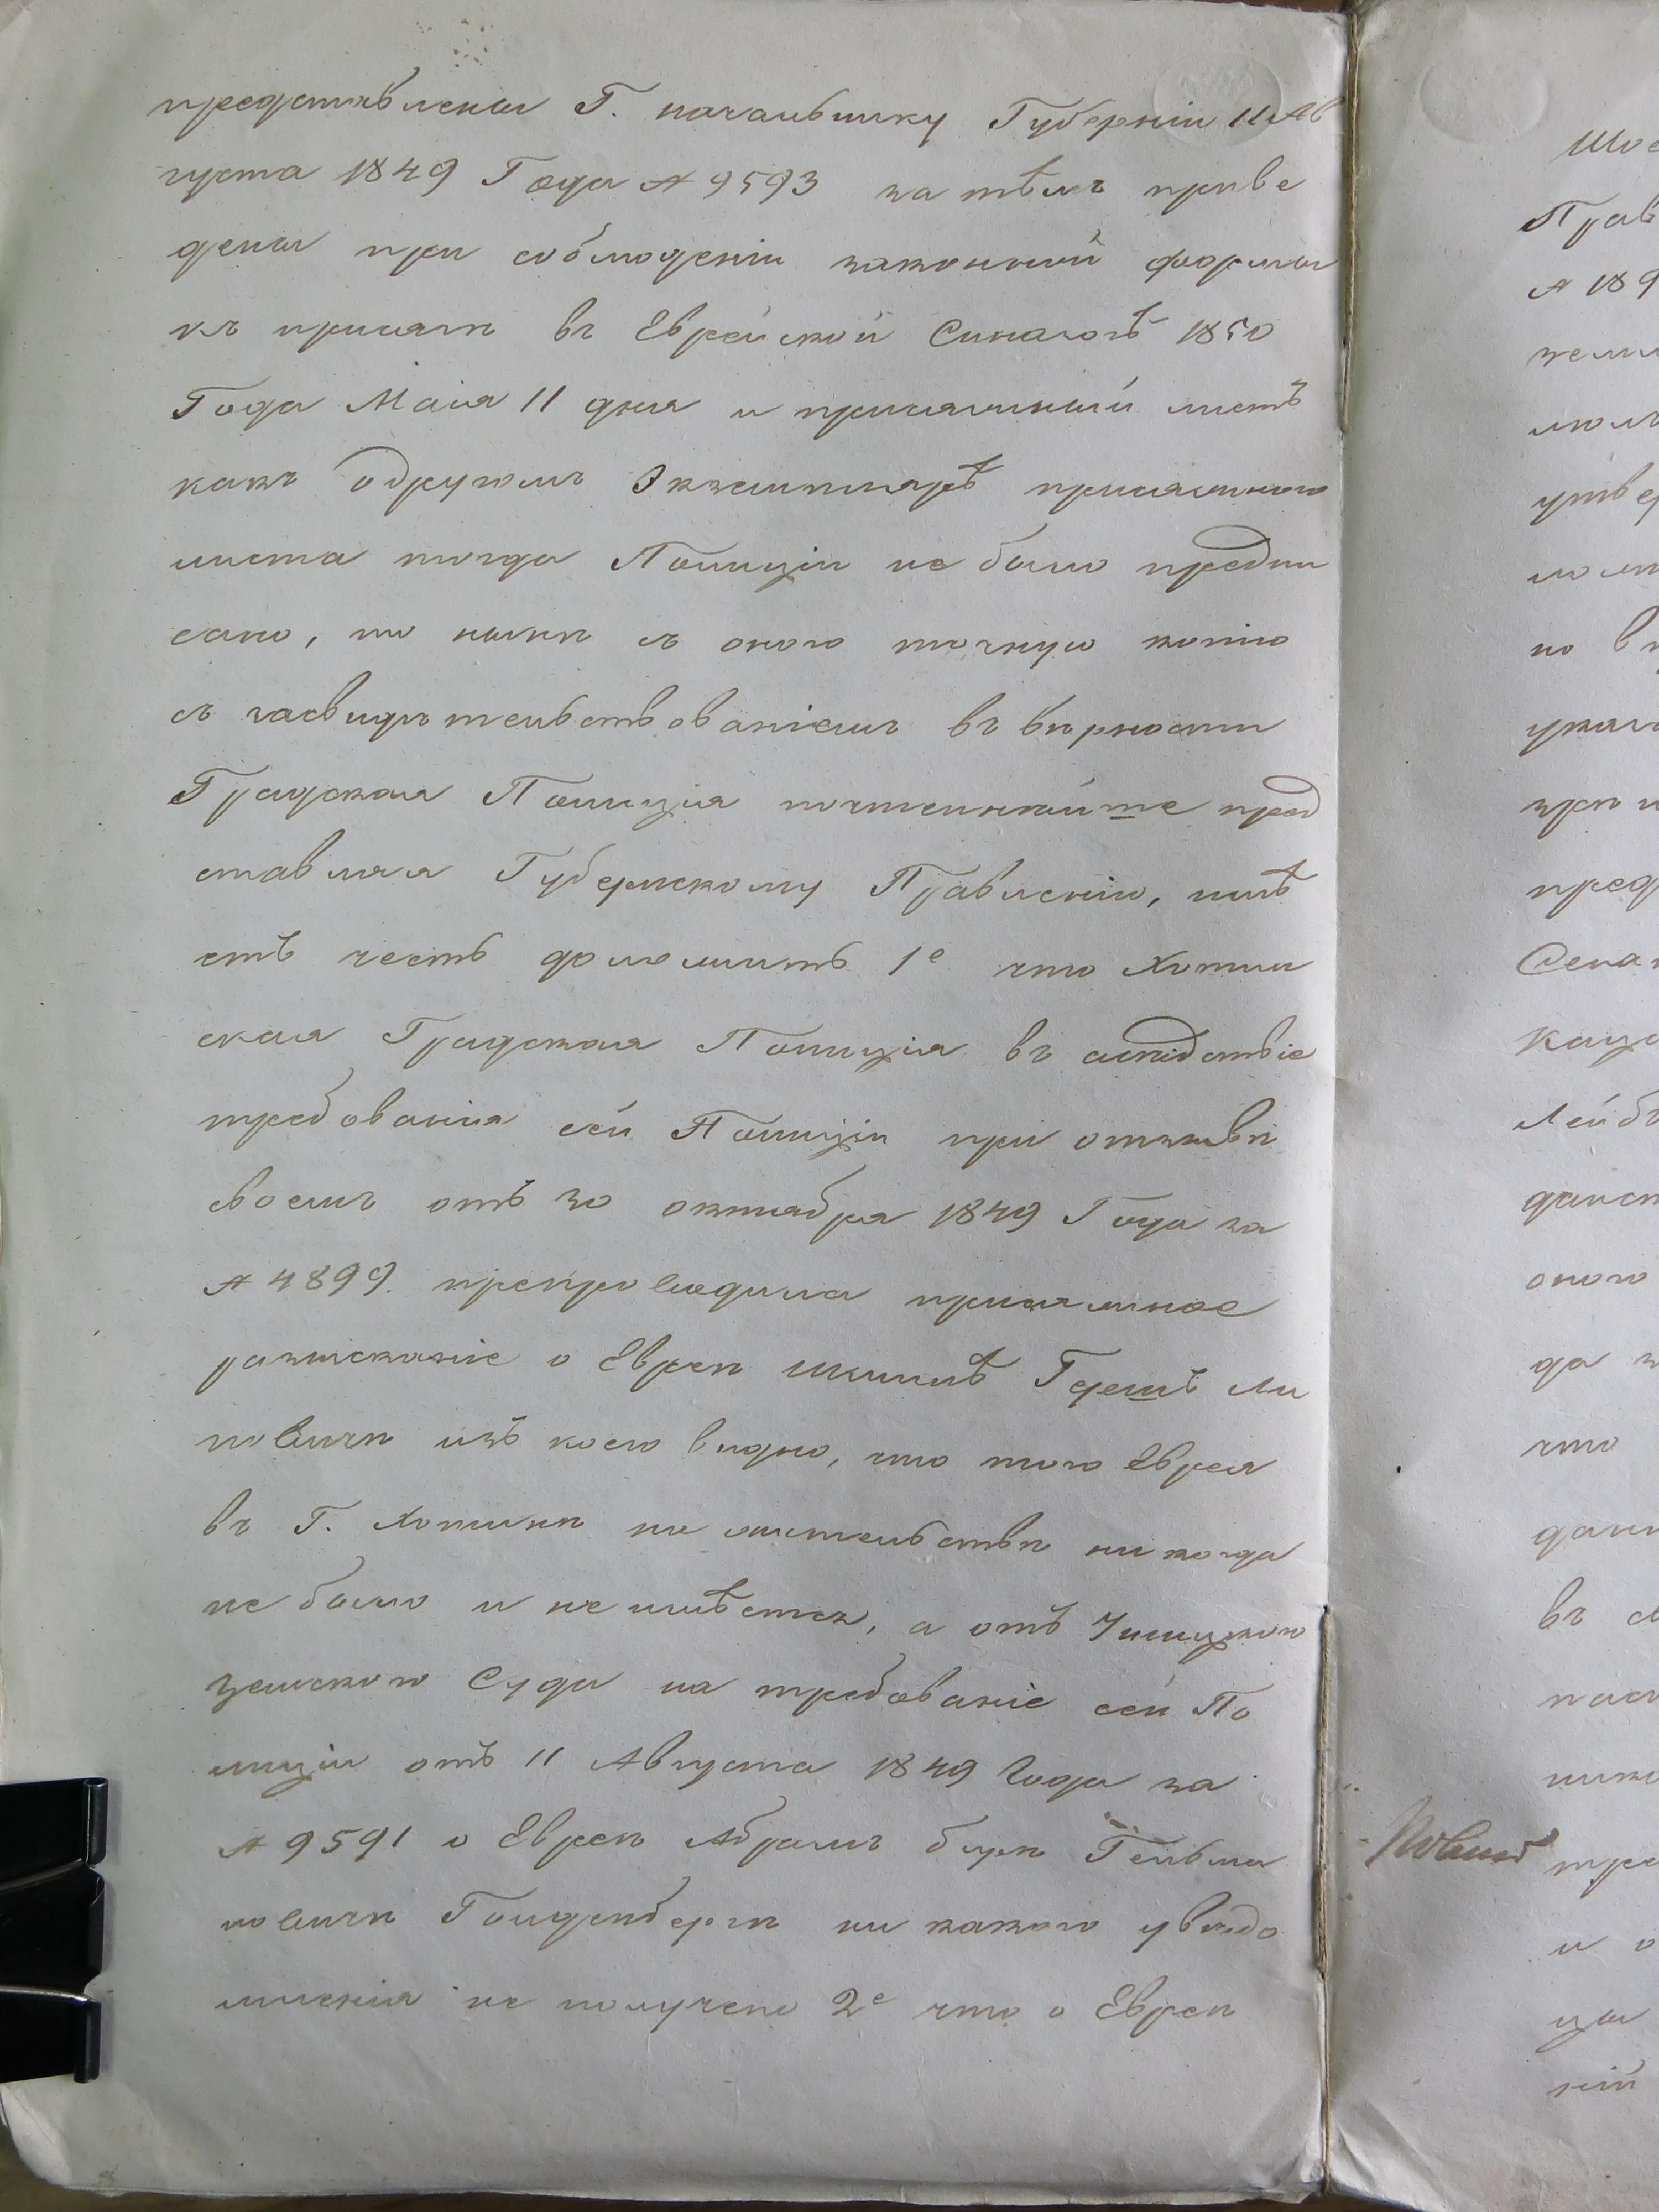 представлены Г. начальнику Губерніи 11 Ав
густа 1849 Года № 9593 за тѣмъ приве
дены при соблюденіи законный формы
къ присяги въ Еврейской Синагогѣ 1850
Года Маія 11 дня и присяжный листъ
какъ одругомъ Экземплярѣ присяжного
листа тогда Полиціи не было предпи
сано, то нынѣ съ оного точную копію
съ засвидѣтельствованіемъ въ вѣрности
Градская Полиція почтеннѣйше пред
ставляя Губернскому Правленію, имѣ
етъ честь доложить 1е что Хотин
ская Градская Полиція въ слѣдствіе
требованія сей Полиціи при отзывѣ
своемъ отъ 30 октября 1849 Года за
№ 4899. препроводила присяжное
разысканіе о Евреѣ Шмилѣ Гершъ Ли
повичѣ изъ коего видно, что того Еврея
въ Г. Хотинѣ на жительствѣ ни когда
не было и не имѣется, а отъ
Земского Суда на требованіе сей По
лиціи отъ 11 Августа 1849 Года за
№ 9591 о Евреѣ Абрамъ Берѣ Гельма
новичѣ Гольденбергѣ ни какого увѣдо
мленія не получено 2е что о Евреѣ